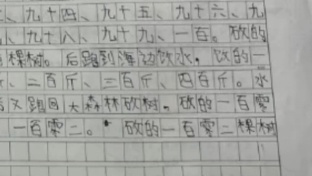 九十四、九十五、九十六、九
、九十八、九十九、一百。砍的
棵树。后跑到海边饮水，饮的一
、二百斤、三百斤、四百斤。水
后又跑回大森林砍树。砍的一百零
一百零二。砍的一百零二棵树